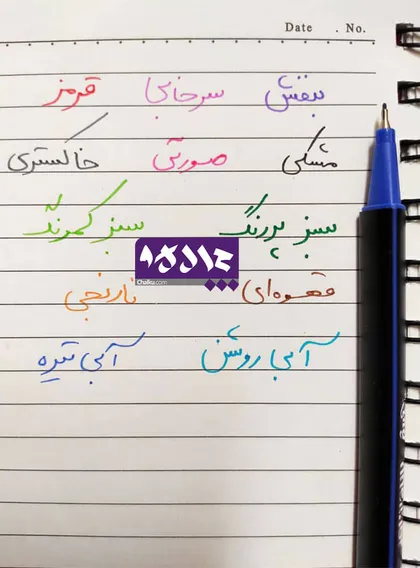 Date . No.
بنفش سرخابی قرمز
مشکی صورتی خاکستری
سبز پررنگ سبز کمرنگ
چاره
Chalku.com
قهوه‌ای نارنجی
آبی روشن آبی تیره